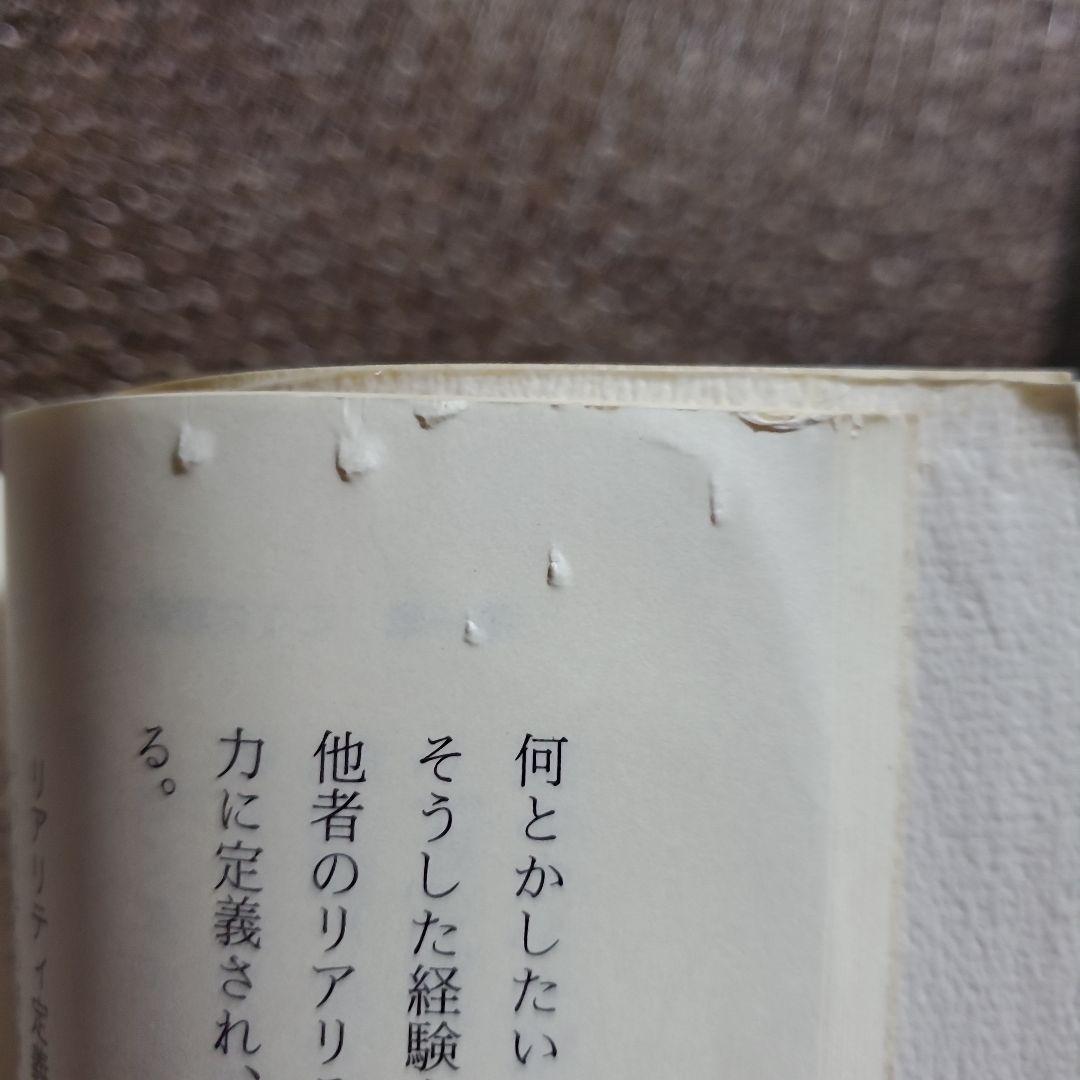 何とかしたい
そうした経験
他者のリアリ
力に定義され、
る。
リアリティ定義